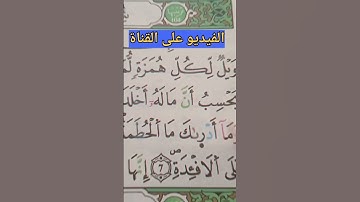 الفيديو على القناة
وَيْلٌ لِّكُلِّ هُمَزَةٍ
يَحْسِبُ أَنَّ مَالَهُۥٓ أَخْلَدَ
وَمَآ أَدْرٜىٰكَ مَا اَ۬لْحُطَمَةُ
عَلَى اَ۬لَافْـِٕدَةِۖ 7 إِنَّهَا